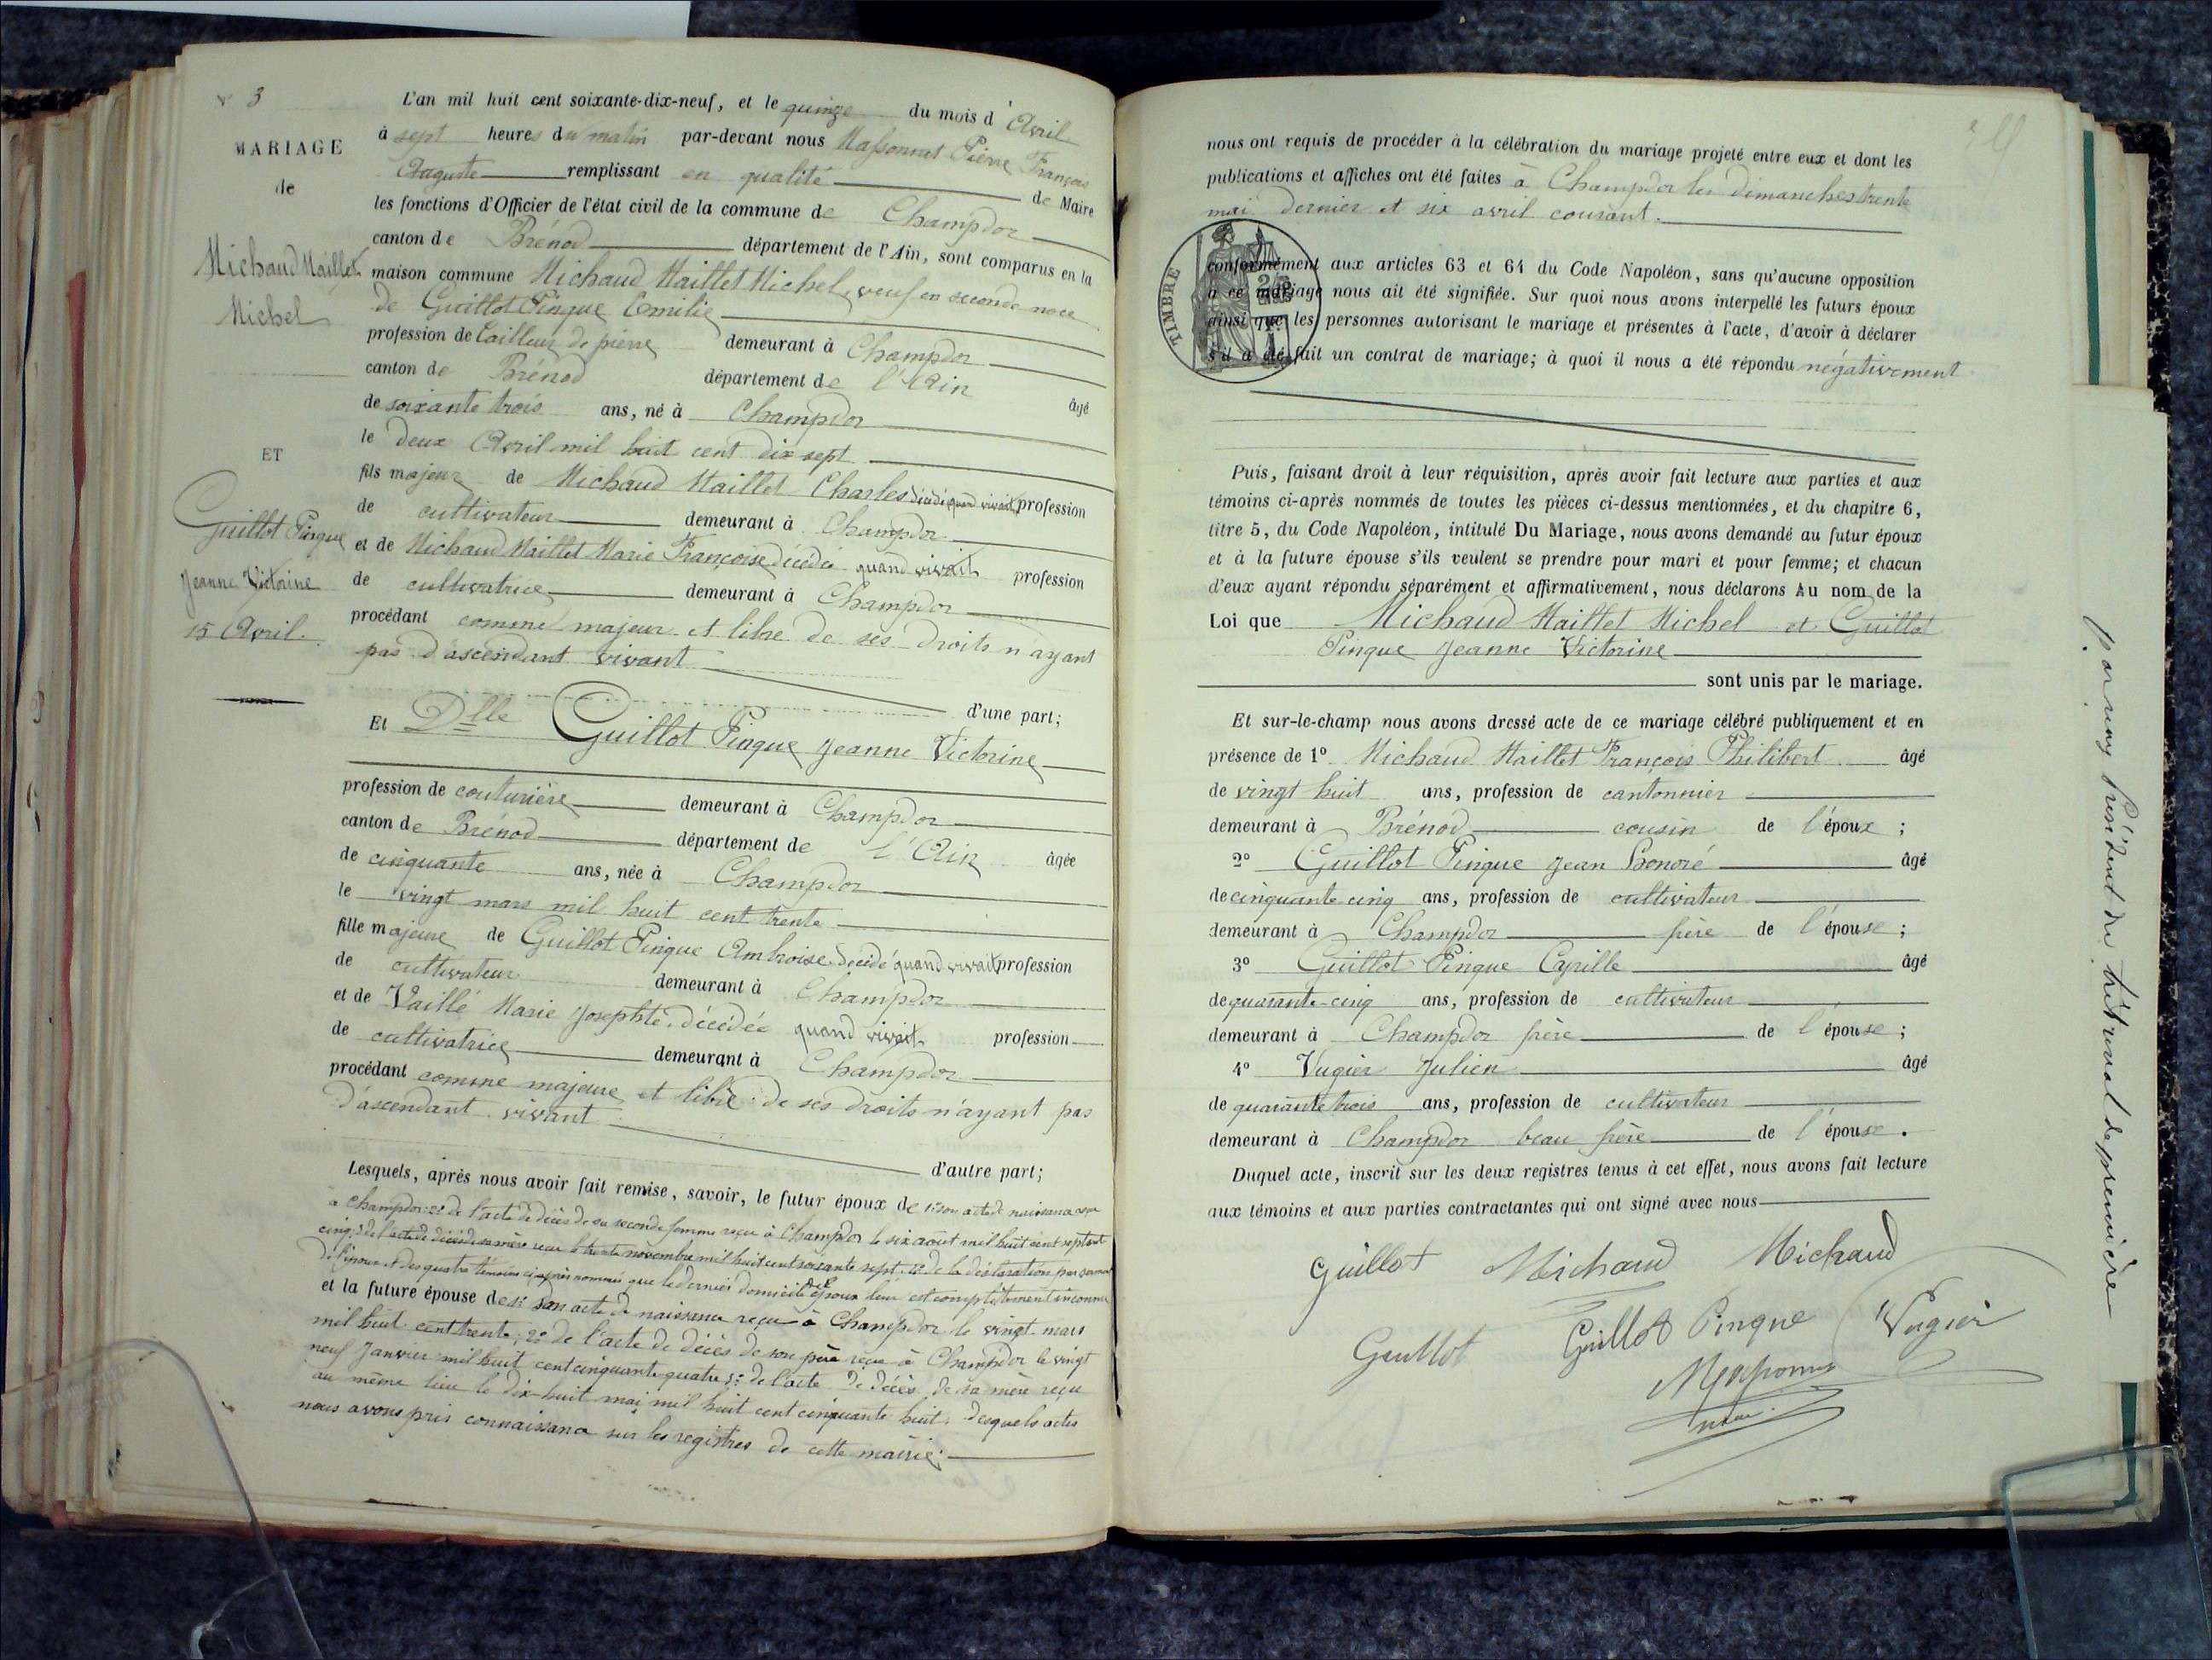 N° 3
MARIAGE
de
Michaud Maillet
Michel
ET
Guillot Pingue
Jeanne Victorine
15 Avril.
L'an mil huit cent soixante-dix-neuf, et le quinze du mois d'Avril
à sept heures du matin par-devant nous Massonnat Pierre François
Auguste remplissant en qualité de Maire
les fonctions d'Officier de l'état civil de la commune de Champdor
canton de Brénod département de l'Ain, sont comparus en la
maison commune Michaud Maillet Michel, veuf en seconde noce
de Guillot Pingue Emilie
profession de tailleur de pierre demeurant à Champdor
canton de Brénod département de l'Ain âgé
de soixante trois ans, né à Champdor
le deux Avril mil huit cent dix-sept
fils majeur de Michaud Maillet Charles décédé quand vivait profession
de cultivateur demeurant à Champdor
et de Michaud Maillet Marie Françoise décédée quand vivait profession
de cultivatrice demeurant à Champdor
procédant comme majeur et libre de ses droits n'ayant
pas d'ascendant vivant
d'une part;
Et Dlle Guillot Pingue Jeanne Victorine
profession de couturière demeurant à Champdor
canton de Brénod département de l'Ain âgée
de cinquante ans, née à Champdor
le vingt mars mil huit cent trente
fille majeure de Guillot Pingue Ambroise décédé quand vivait profession
de cultivateur demeurant à Champdor
et de Vaillé Marie Josephte, décédée quand vivait profession
de cultivatrice demeurant à Champdor
procédant comme majeure et libre de ses droits n'ayant pas
d'ascendant vivant
d'autre part;
Lesquels, après nous avoir fait remise, savoir, le futur époux de 1° son acte de naissance reçu
à Champdor: 2° de l'acte de décès de sa seconde femme reçu à Champdor le six août mil huit cent septante
cinq; 3° de l'acte de décès de sa mère reçu le trente novembre mil huit cent soixante sept. 4° de la déclaration par serment
de l'époux et des quatre témoins ci-après nommés que le dernier domicile époux leur est complètement inconnu
et la future épouse de 1° son acte de naissance reçu à Champdor le vingt mars
mil huit cent trente; 2° de l'acte de décès de son père reçu à Champdor le vingt
neuf Janvier mil huit cent cinquante quatre 3° de l'acte de décès de sa mère reçu
au même lieu le dix-huit mai mil huit cent cinquante huit, desquels actes
nous avons pris connaissance sur les registres de cette mairie;
nous ont requis de procéder à la célébration du mariage projeté entre eux et dont les
publications et affiches ont été faites à Champdor les dimanches trente
mai dernier et six avril courant.
TIMBRE
conformément aux articles 63 et 64 du Code Napoléon, sans qu'aucune opposition
à ce mariage nous ait été signifiée. Sur quoi nous avons interpellé les futurs époux
ainsi que les personnes autorisant le mariage et présentes à l'acte, d'avoir à déclarer
s'il a été fait un contrat de mariage; à quoi il nous a été répondu négativement
Puis, faisant droit à leur réquisition, après avoir fait lecture aux parties et aux
témoins ci-après nommés de toutes les pièces ci-dessus mentionnées, et du chapitre 6,
titre 5, du Code Napoléon, intitulé Du Mariage, nous avons demandé au futur époux
et à la future épouse s'ils veulent se prendre pour mari et pour femme; et chacun
d'eux ayant répondu séparément et affirmativement, nous déclarons Au nom de la
Loi que Michaud Maillet Michel et Guillot
Pingue Jeanne Victorine
sont unis par le mariage.
Et sur-le-champ nous avons dressé acte de ce mariage célébré publiquement et en
présence de 1° Michaud Maillet François Philibert âgé
de vingt huit ans, profession de cantonnier
demeurant à Brénod cousin de l'époux;
2° Guillot Pingue Jean Honoré âgé
de cinquante cinq ans, profession de cultivateur
demeurant à Champdor frère de l'épouse;
3° Guillot Pingue Cyrille âgé
de quarante-cinq ans, profession de cultivateur
demeurant à Champdor frère de l'épouse;
4° Vugier Julien âgé
de quarante trois ans, profession de cultivateur
demeurant à Champdor beau frère de l'épouse.
Duquel acte, inscrit sur les deux registres tenus à cet effet, nous avons fait lecture
aux témoins et aux parties contractantes qui ont signé avec nous
Guillot Michaud Michaud
Guillot Guillot Pingue Vugier
par nous président du tribunal de première